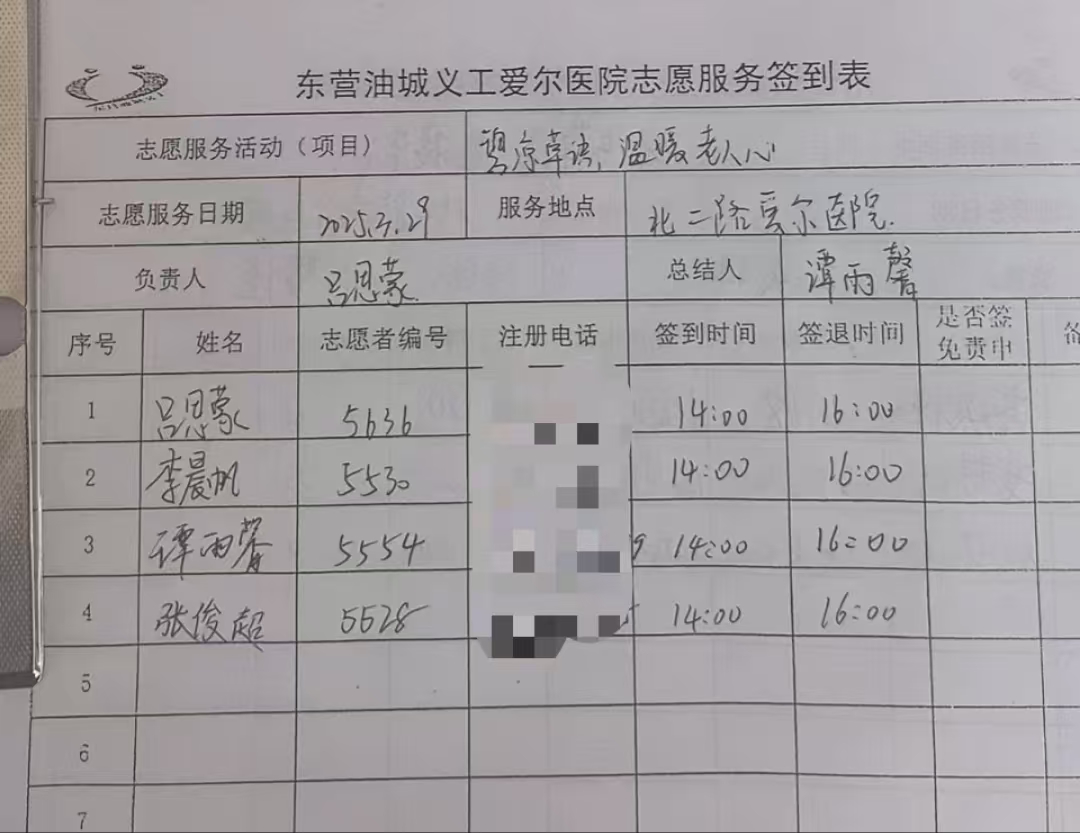 东营油城义工爱尔医院志愿服务签到表
志愿服务活动（项目） 碧凉草语，温暖老人心
志愿服务日期 2025.3.29 服务地点 北二路爱尔医院.
负责人 吕思蒙 总结人 谭雨馨
序号 姓名 志愿者编号 注册电话 签到时间 签退时间 是否签免费申
1 吕思蒙 5636 14:00 16:00
2 李晨帆 5530 14:00 16:00
3 谭雨馨 5554 14:00 16:00
4 张俊超 5528 14:00 16:00
5
6
7